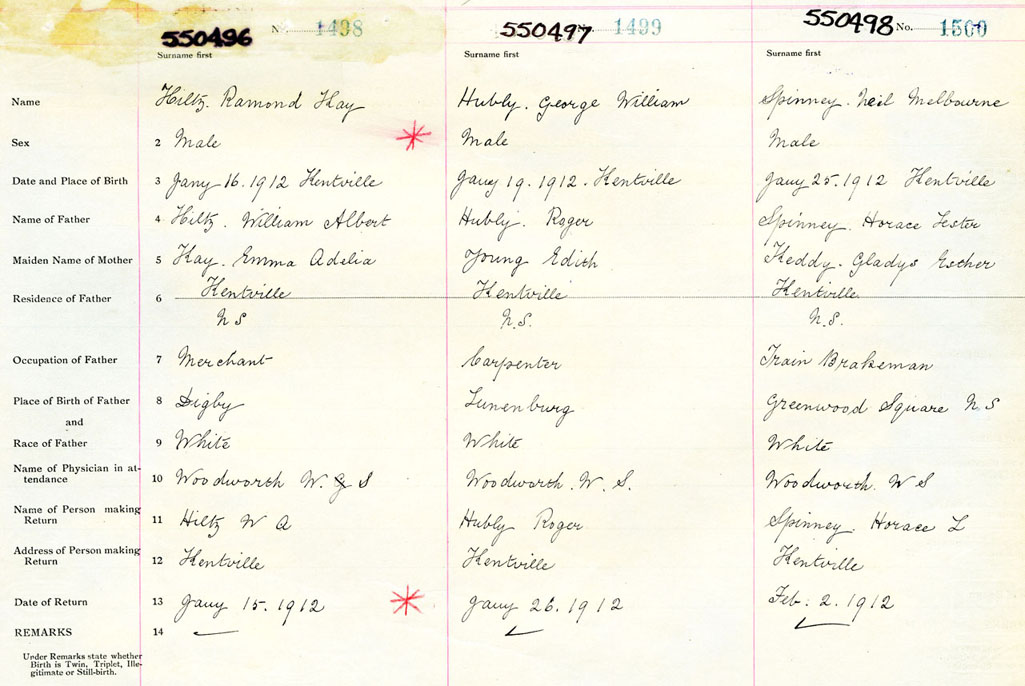 550496 No. 1498 550497 No. 1499 550498 No. 1500
Surname first Surname first Surname first
Name Hiltz. Ramond Kay Hubly. George William Spinney. Neil Melbourne
Sex 2 Male Male Male
Date and Place of Birth 3 Jany 16. 1912 Kentville Jany 19. 1912. Kentville Jany 25. 1912 Kentville
Name of Father 4 Hiltz. William Albert Hubly. Roger Spinney. Horace Lester
Maiden Name of Mother 5 Kay. Emma Adelia Young Edith Keddy. Gladys Esther
Residence of Father 6 Kentville Kentville Kentville
N S N.S. N.S.
Occupation of Father 7 Merchant Carpenter Train Brakeman
Place of Birth of Father 8 Digby Lunenburg Greenwood Square N S
and
Race of Father 9 White White White
Name of Physician in at-
tendance 10 Woodworth W. S Woodworth. W. S. Woodworth. W S
Name of Person making
Return 11 Hiltz W A Hubly Roger Spinney. Horace L
Address of Person making
Return 12 Kentville Kentville Kentville
Date of Return 13 Jany 15. 1912 Jany 26. 1912 Feb. 2. 1912
REMARKS 14
Under Remarks state whether
Birth is Twin, Triplet, Ille-
gitimate or Still-birth.